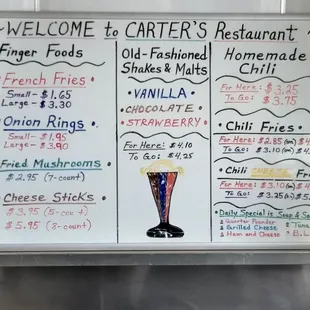 ~WELCOME to CARTER'S Restaurant ~
Finger Foods
French Fries •
Small- $1.65
Large- $3.30
Onion Rings •
Small- $1.95
Large- $3.90
Fried Mushrooms •
$2.95 (7-count)
Cheese Sticks •
$3.95 (5-count)
$5.95 (8-count)
Old-Fashioned
Shakes & Malts
• VANILLA •
• CHOCOLATE •
• STRAWBERRY •
For Here: $4.10
To Go: $4.25
Homemade
Chili
For Here: $3.25
To Go: $3.75
• Chili Fries •
For Here: $2.85
To Go: $3.10
• Chili
For Here: $3.10
To Go: $3.25
Daily Special is Soup &
Quarter Pounder
Grilled Cheese
Ham and Cheese